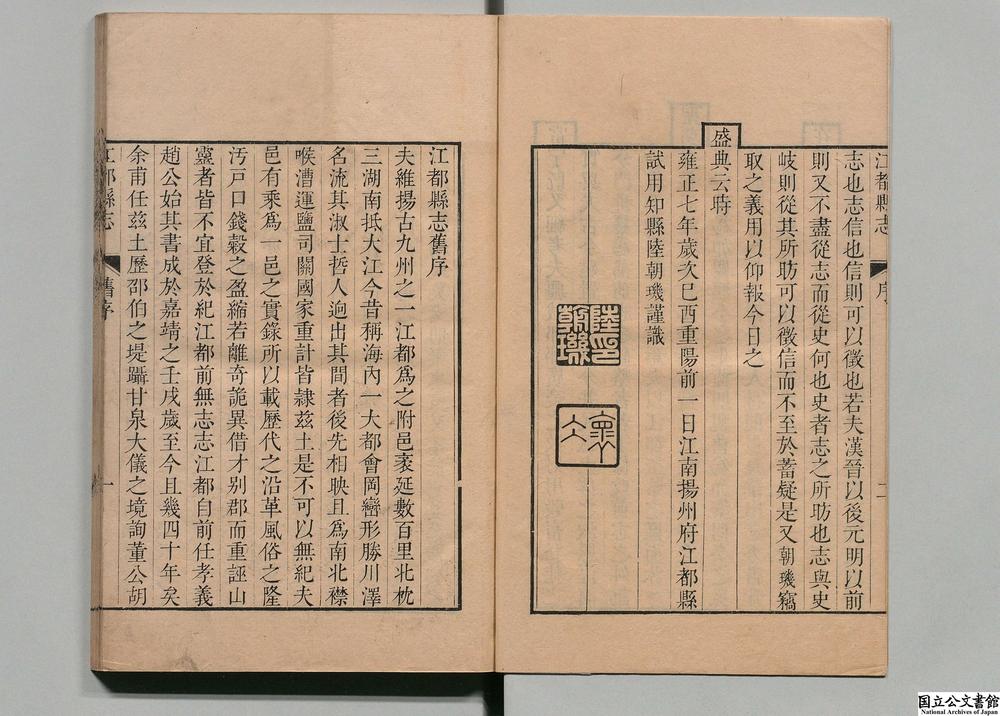 江都縣志
序
二
志也志信也信則可以徵也若夫漢晉以後元明以前
則又不盡從志而從史何也史者志之所昉也志與史
岐則從其所昉可以徵信而不至於蓄疑是又朝璣竊
取之義用以仰報今日之
盛典云時
雍正七年歲次己酉重陽前一日江南揚州府江都縣
試用知縣陸朝璣謹識
陸朝璣印
江都縣志舊序
夫維揚古九州之一江都爲之附邑袤延數百里北枕
三湖南抵大江今昔稱海內一大都會岡巒形勝川澤
名流其淑士哲人迥出其間者後先相映且爲南北襟
喉漕運鹽司關國家重計皆隸茲土是不可以無紀夫
邑有乘爲一邑之實錄所以載歷代之沿革風俗之隆
汚戸口錢穀之盈縮若離奇詭異借才别郡而重誣山
靈者皆不宜登於紀江都前無志志江都自前任孝義
趙公始其書成於嘉靖之壬戌歲至今且幾四十年矣
余甫任茲土歷邵伯之堤躡甘泉大儀之境詢董公胡
江都縣志
舊序
一
国立公文書館
National Archives of Japan